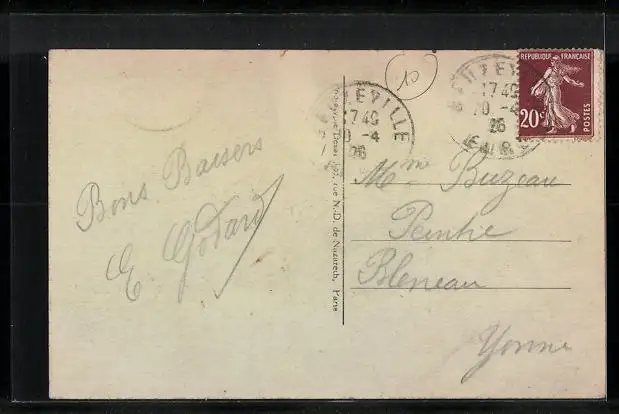 Bons Baisers
E. Godard
10
REPUBLIQUE FRANÇAISE
20c
POSTES
17 45
20 -4
26
EVILLE
17 45
20 -4
26
Mme Buzeau
Peintre
Bleneau
Yonne
rue N.-D. de Nazareth, Paris